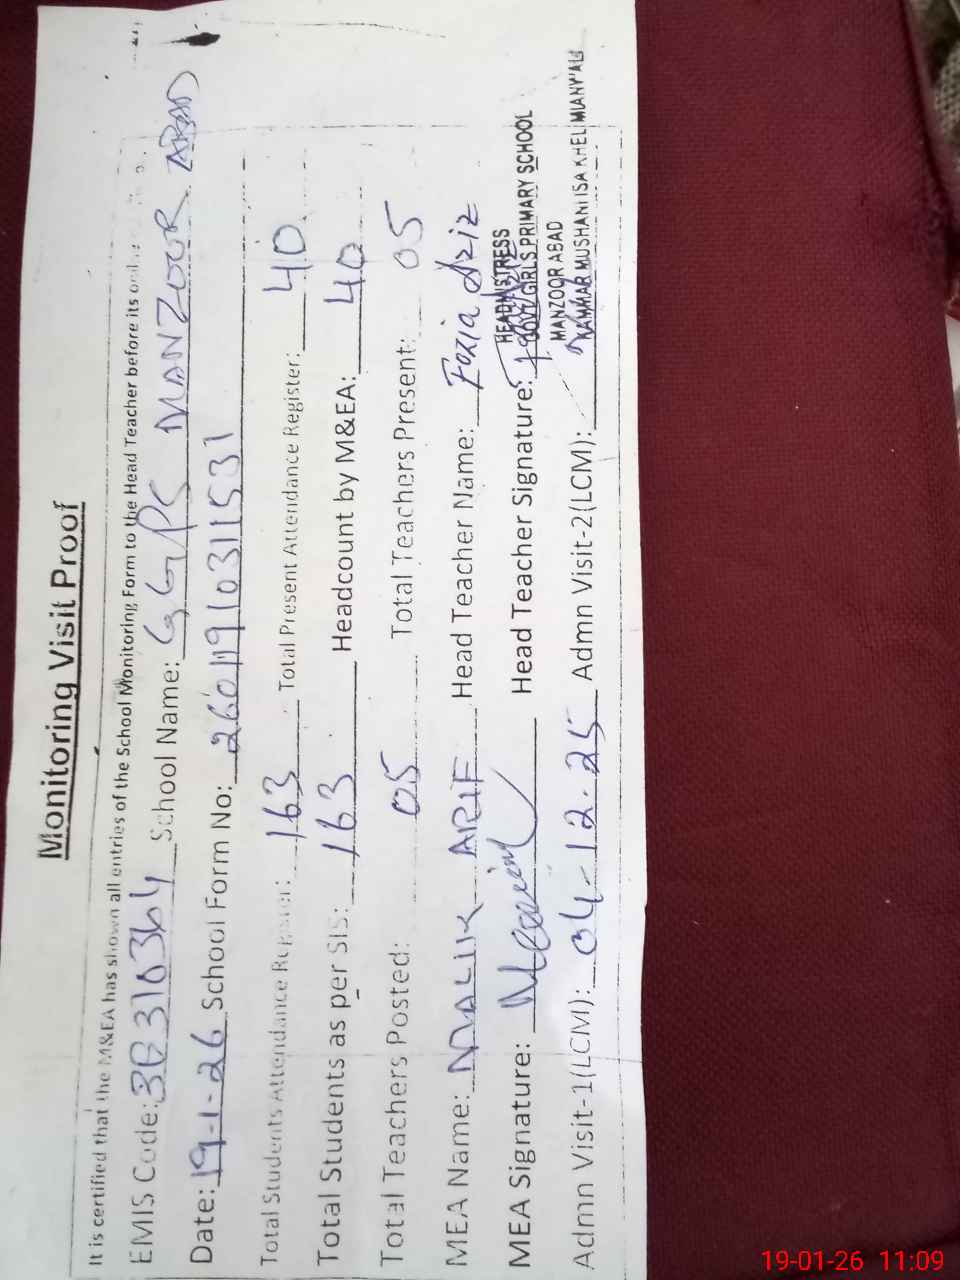 Monitoring Visit Proof
It is certified that the M&EA has shown all entries of the School Monitoring Form to the Head Teacher before its
EMIS Code: 38310364 School Name: GGPS MANZOOR ABAD
Date: 19-1-26 School Form No: 26011910311531
Total Students Attendance Register: 163 Total Present Attendance Register: 40
Total Students as per SIS: 163 Headcount by M&EA: 40
Total Teachers Posted: 05 Total Teachers Present: 05
MEA Name: MALIK ARIF Head Teacher Name: Fozia Aziz
MEA Signature: Head Teacher Signature:
HEADMISTRESS
GOVT GIRLS PRIMARY SCHOOL
MANZOOR ABAD
KAMMAR MUSHANI ISA KHEL MIANWALI
Admn Visit-1(LCMI): 04-12-25 Admn Visit-2(LCMI):
19-01-26 11:09